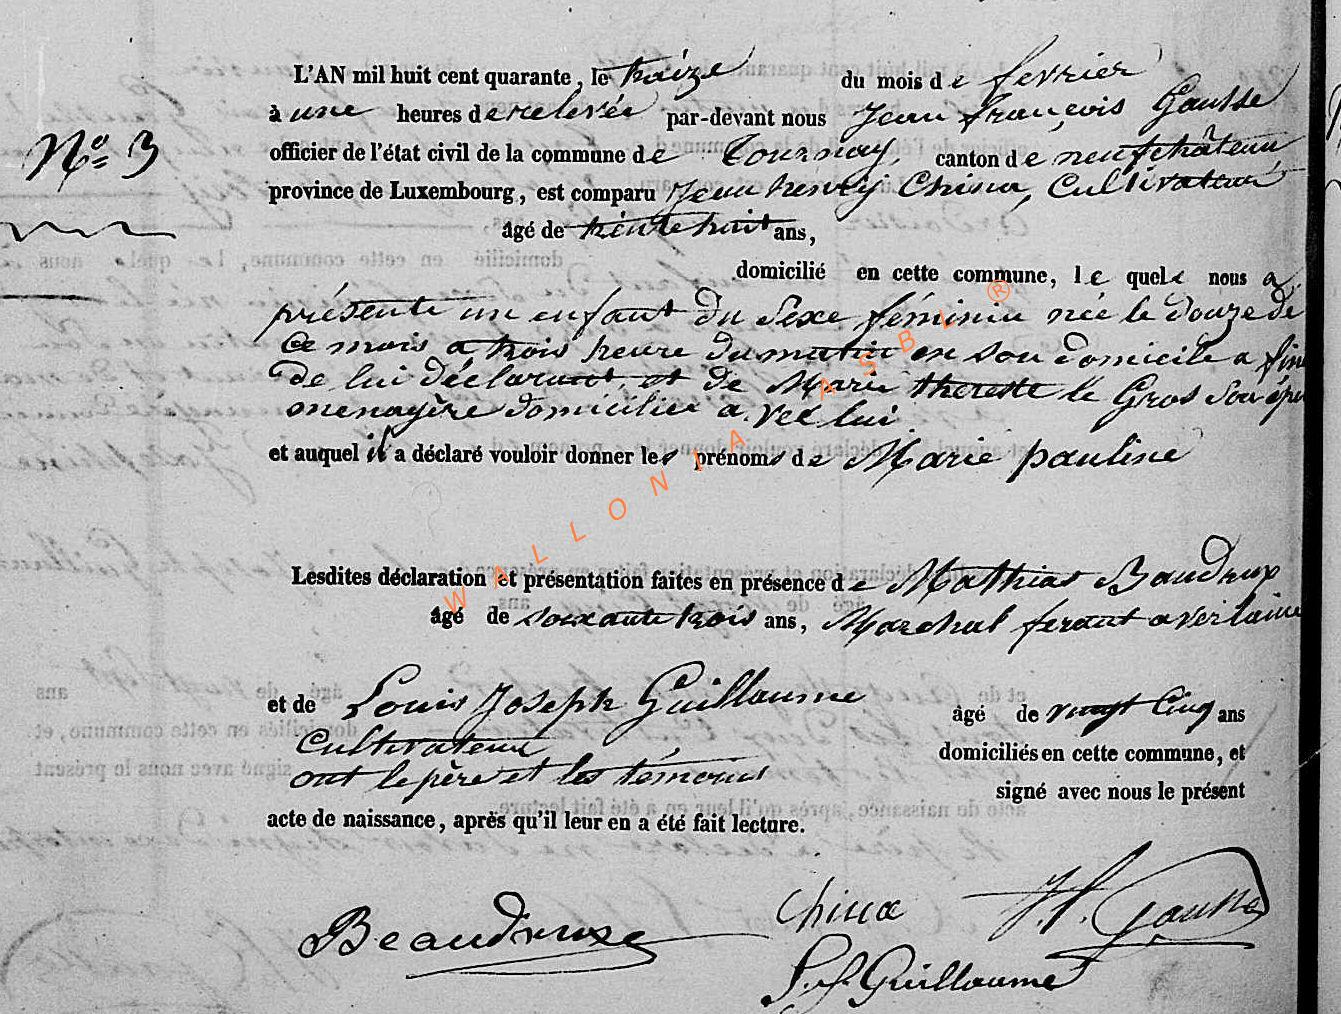 L'AN mil huit cent quarante, le treize du mois de fevrier
à une heures de relevée par-devant nous Jean françois Gausse
N° 3
officier de l'état civil de la commune de Tournay, canton de neufchâteau
province de Luxembourg, est comparu Jean henry China, Cultivateur
âgé de trente huit ans,
domicilié en cette commune, le quel nous a
présenté un enfant du Sexe féminin née le douze de
Ce mois a trois heure du matin en Son domicile a
de lui déclarant et de Marie thereste le Gros Son
menagère domicilier a vec lui
et auquel il a déclaré vouloir donner les prénoms de Marie pauline
Lesdites déclaration et présentation faites en présence de Mathias Baudrux
âgé de soixante trois ans, Marchal ferant a verlaine
et de Louis Joseph Guillaume âgé de vingt Cinq ans
Cultivateur domiciliés en cette commune, et
ont le père et les témoins signé avec nous le présent
acte de naissance, après qu'il leur en a été fait lecture.
Beaudruxe China J. f. Gausse
L. J. Guillaume
WALLONIA ASBL ®